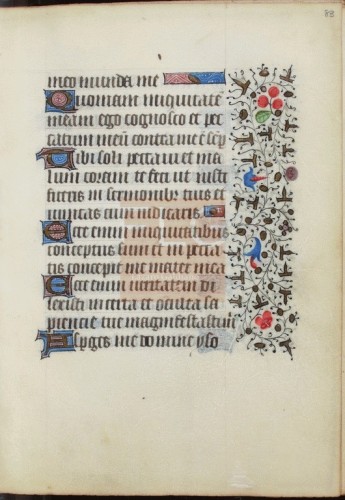 89
meo munda me
Quoniam iniquitatē
meam ego cognosco et pec
catum meū contra me ē sēp
Tibi soli peccaui et ma
lum coram te feci ut iusti
ficeris in sermonibꝫ tuis et
uincas cum iudicaris
Ecce enim iniquitatibus
conceptus sum et in pecca
tis concepit me mater mea
Ecce enim ueritatem di
lexisti incerta et occulta sa
piencie tue magnifestasti m̄
Asperges me domine yso